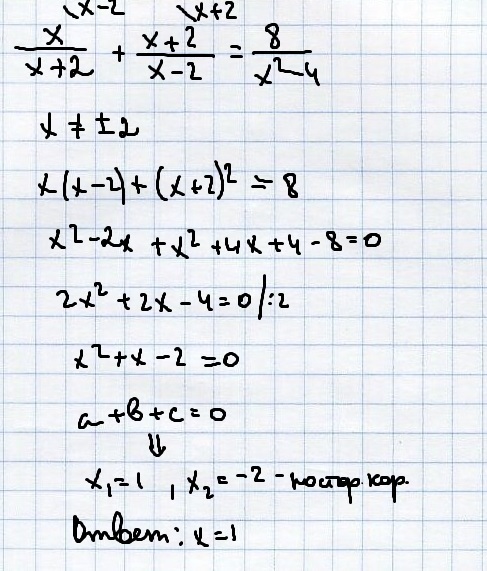 \x-2 \x+2
x/(x+2) + (x+2)/(x-2) = 8/(x²-4)
x ≠ ±2
x(x-2)+(x+2)² = 8
x²-2x+x²+4x+4-8=0
2x²+2x-4=0 |:2
x²+x-2=0
a+b+c=0
⇓
x₁=1, x₂=-2 - постор. кор.
Ответ: x=1